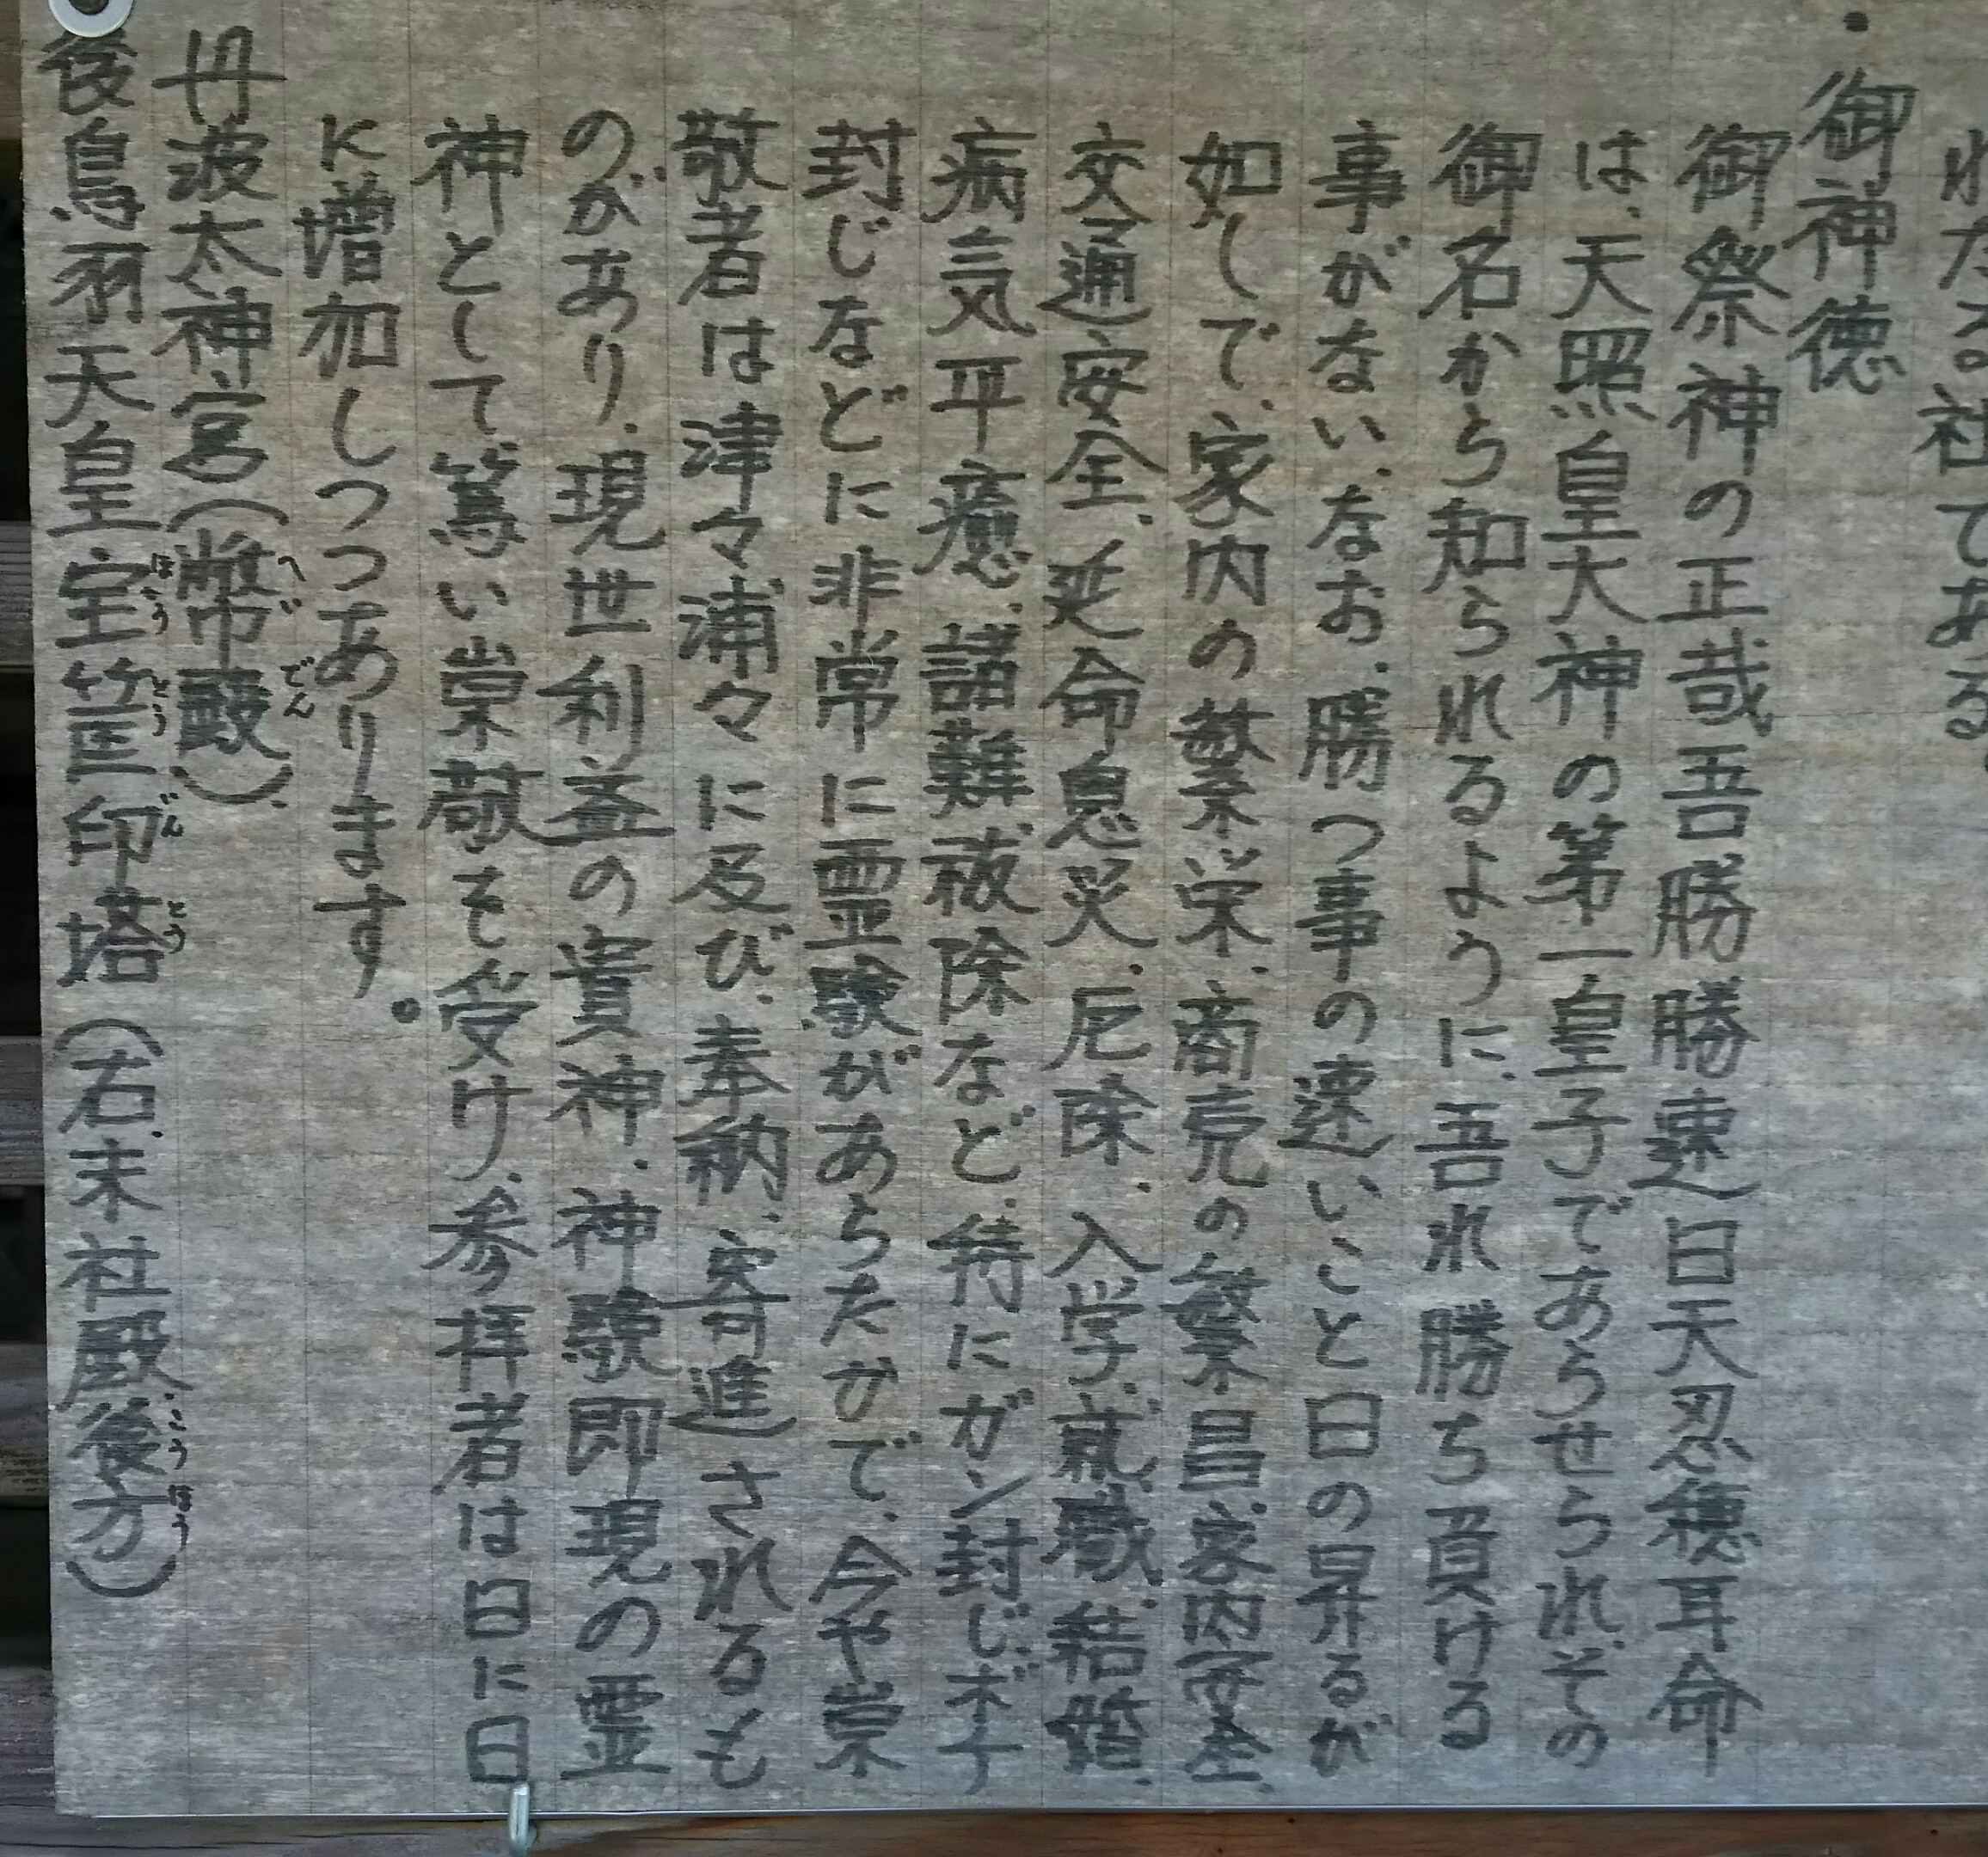 れたる社である。
・御神徳
御祭神の正哉吾勝勝速日天忍穂耳命
は、天照皇大神の第一皇子であらせられ、その
御名から知られるように、吾れ勝ち負ける
事がない、なお、勝つ事の速いこと日の昇るが
如しで、家内の繁栄、商売の繁昌、家内安全、
交通安全、延命息災、厄除、入学、就職、結婚、
病気平癒、諸難祓除など、特にガン封じ、ボケ
封じなどに非常に霊験があらたかで、今や崇
敬者は津々浦々に及び、奉納、寄進されるも
のがあり、現世利益の貴神、神験即現の霊
神として、篤い崇敬を受け、参拝者は日に日
に増加しつつあります。
丹波太神宮(幣殿)、
後鳥羽天皇宝筐印塔(右末社殿後方)
へいでん
ほうとうぎんとう
こうほう